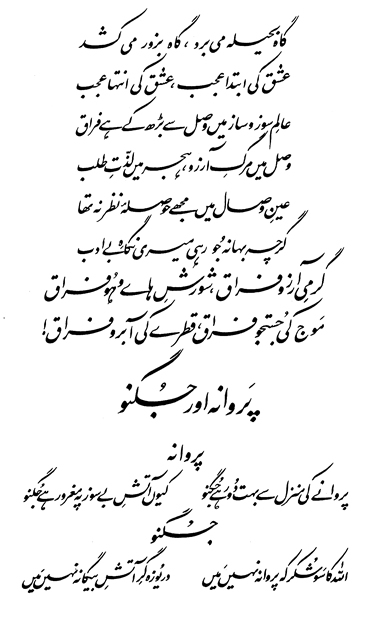 گاہ بحیلہ می برد ، گاہ بزور می کشد
عشق کی ابتدا عجب ، عشق کی انتہا عجب
عالمِ سوز و ساز میں وصل سے بڑھ کے ہے فراق
وصل میں مرگِ آرزو ، ہجر میں لذتِ طلب
عینِ وصال میں مجھے حوصلۂ نظر نہ تھا
گرچہ بہانہ جُو رہی میری نگاہِ بے ادب
گرمیِ آرزو فراق ، شورشِ ہاے و ہُو فراق
موج کی جستجو فراق ، قطرے کی آبرو فراق !
پَروانہ اور جُگنو
پروانہ
پروانے کی منزل سے بہت دُور ہے جُگنو کیوں آتشِ بے سوز پہ مغرور ہے جُگنو
جُگنو
اللہ کا سَو شکر کہ پروانہ نہیں مَیں دریوزہ گرِ آتشِ بیگانہ نہیں مَیں